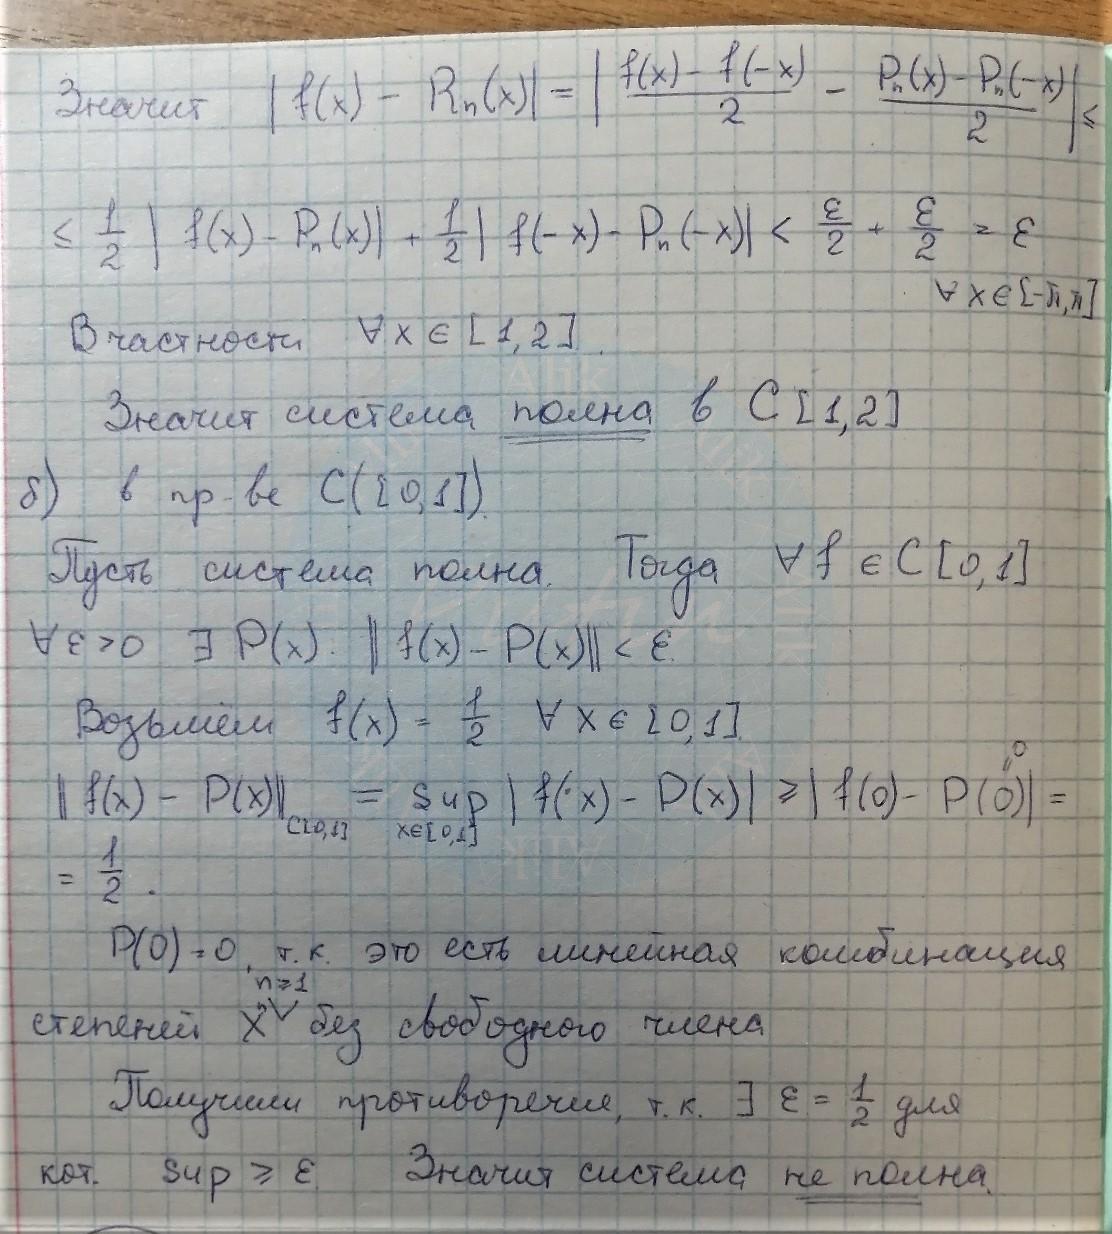 Значит |f(x) - Rₙ(x)| = |(f(x) - f(-x))/2 - (Pₙ(x) - Pₙ(-x))/2| ≤
≤ 1/2 |f(x) - Pₙ(x)| + 1/2 |f(-x) - Pₙ(-x)| < ε/2 + ε/2 = ε
∀ x ∈ [-π, π]
В частности ∀ x ∈ [1, 2].
Значит система полна в C[1,2]
б) в пр-ве C([0,1]).
Пусть система полна. Тогда ∀ f ∈ C[0,1]
∀ ε > 0 ∃ P(x): ||f(x) - P(x)|| < ε.
Возьмём f(x) = 1/2 ∀ x ∈ [0,1].
||f(x) - P(x)||_C[0,1] = sup_{x∈[0,1]} |f(x) - P(x)| ≥ |f(0) - P(0)| =
= 1/2.
P(0) = 0, т.к. это есть линейная комбинация
степеней xⁿ, n ≥ 1 без свободного члена
Получили противоречие, т.к. ∃ ε = 1/2 для
кот. sup ≥ ε. Значит система не полна.
Alik